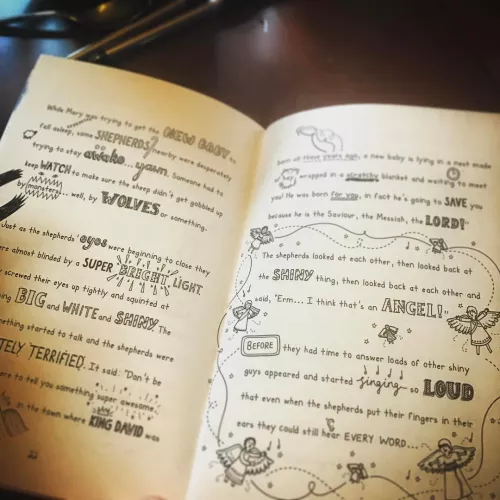 While Mary was trying to get the NEW BABY to
fall asleep, some SHEPHERDS nearby were desperately
trying to stay awake... yawn. Someone had to
keep WATCH to make sure the sheep didn't get gobbled up
by monsters... well, by WOLVES or something.
Just as the shepherds' eyes were beginning to close they
were almost blinded by a SUPER BRIGHT LIGHT.
screwed their eyes up tightly and squinted at
BIG and WHITE and SHINY. The
something started to talk and the shepherds were
TERRIFIED. It said: "Don't be
here to tell you something super awesome.
in the town where KING DAVID was
22
born all those years ago, a new baby is lying in a nest made
of hay, wrapped in a scratchy blanket and waiting to meet
you! He was born for you, in fact he's going to SAVE you
because he is the Saviour, the Messiah, the LORD!"
The shepherds looked at each other, then looked back at
the SHINY thing, then looked back at each other and
said, "Erm... I think that's an ANGEL!"
BEFORE they had time to answer loads of other shiny
guys appeared and started singing - so LOUD
that even when the shepherds put their fingers in their
ears they could still hear EVERY WORD...